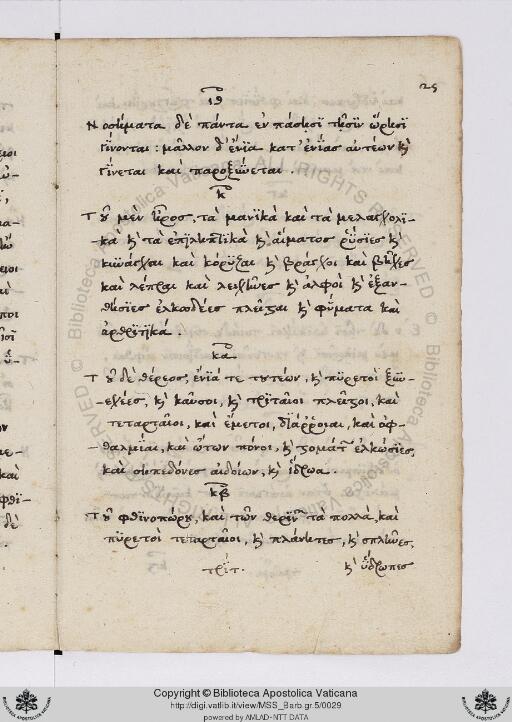 25
ιθ
Νοσήματα δὲ πάντα ἐν πάσῃσι τῇσιν ὥρῃσι
γίνονται : μᾶλλον δ' ἔνια κατ' ἐνίας αὐτέων κ̀
γίνεται καὶ παροξύνεται .
κ
Τοῦ μὲν ἦρος, τὰ μανικὰ καὶ τὰ μελαγχολι-
κὰ κ̀ τὰ ἐπιληπτικὰ κ̀ αἵματος ῥύσιες κ̀
κυνάγχαι καὶ κόρυζαι κ̀ βράγχοι καὶ βῆχες
καὶ λέπραι καὶ λειχῆνες κ̀ ἀλφοὶ κ̀ ἐξαν-
θήσιες ἑλκώδεες πλεῖσται κ̀ φύματα καὶ
ἀρθριτικά .
κα
Τοῦ δὲ θέρεος, ἔνιά τε τουτέων, κ̀ πυρετοὶ ξυν-
εχέες, κ̀ καῦσοι, κ̀ τριταῖοι πλεῖστοι, καὶ
τεταρταῖοι, καὶ ἔμετοι, διάρροιαι, καὶ ὀφ-
θαλμίαι, καὶ ὤτων πόνοι, κ̀ στομάτ ἑλκώσιες,
καὶ σηπεδόνες αἰδοίων, κ̀ ἵδρωα .
κβ
Τοῦ φθινοπώρου, καὶ τῶν θεριν τὰ πολλὰ, καὶ
πυρετοὶ τεταρταῖοι, κ̀ πλάνητες, κ̀ σπλῆνες,
κ̀ ὕδρωπες
Copyright © Biblioteca Apostolica Vaticana
http://digi.vatlib.it/view/MSS_Barb.gr.5/0029
powered by AMLAD-NTT DATA